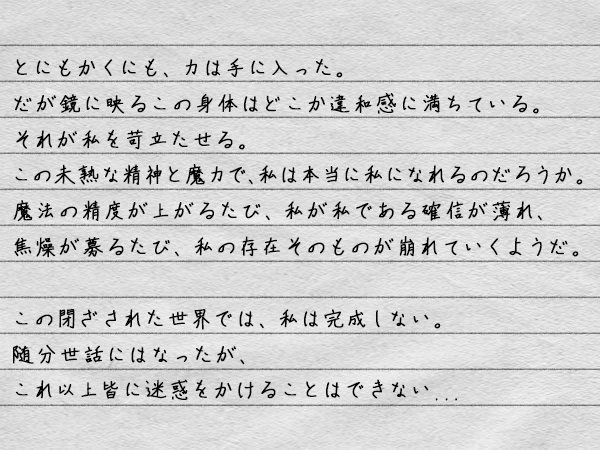 とにもかくにも、力は手に入った。
だが鏡に映るこの身体はどこか違和感に満ちている。
それが私を苛立たせる。
この未熟な精神と魔力で、私は本当に私になれるのだろうか。
魔法の精度が上がるたび、私が私である確信が薄れ、
焦燥が募るたび、私の存在そのものが崩れていくようだ。
この閉ざされた世界では、私は完成しない。
随分世話にはなったが、
これ以上皆に迷惑をかけることはできない...